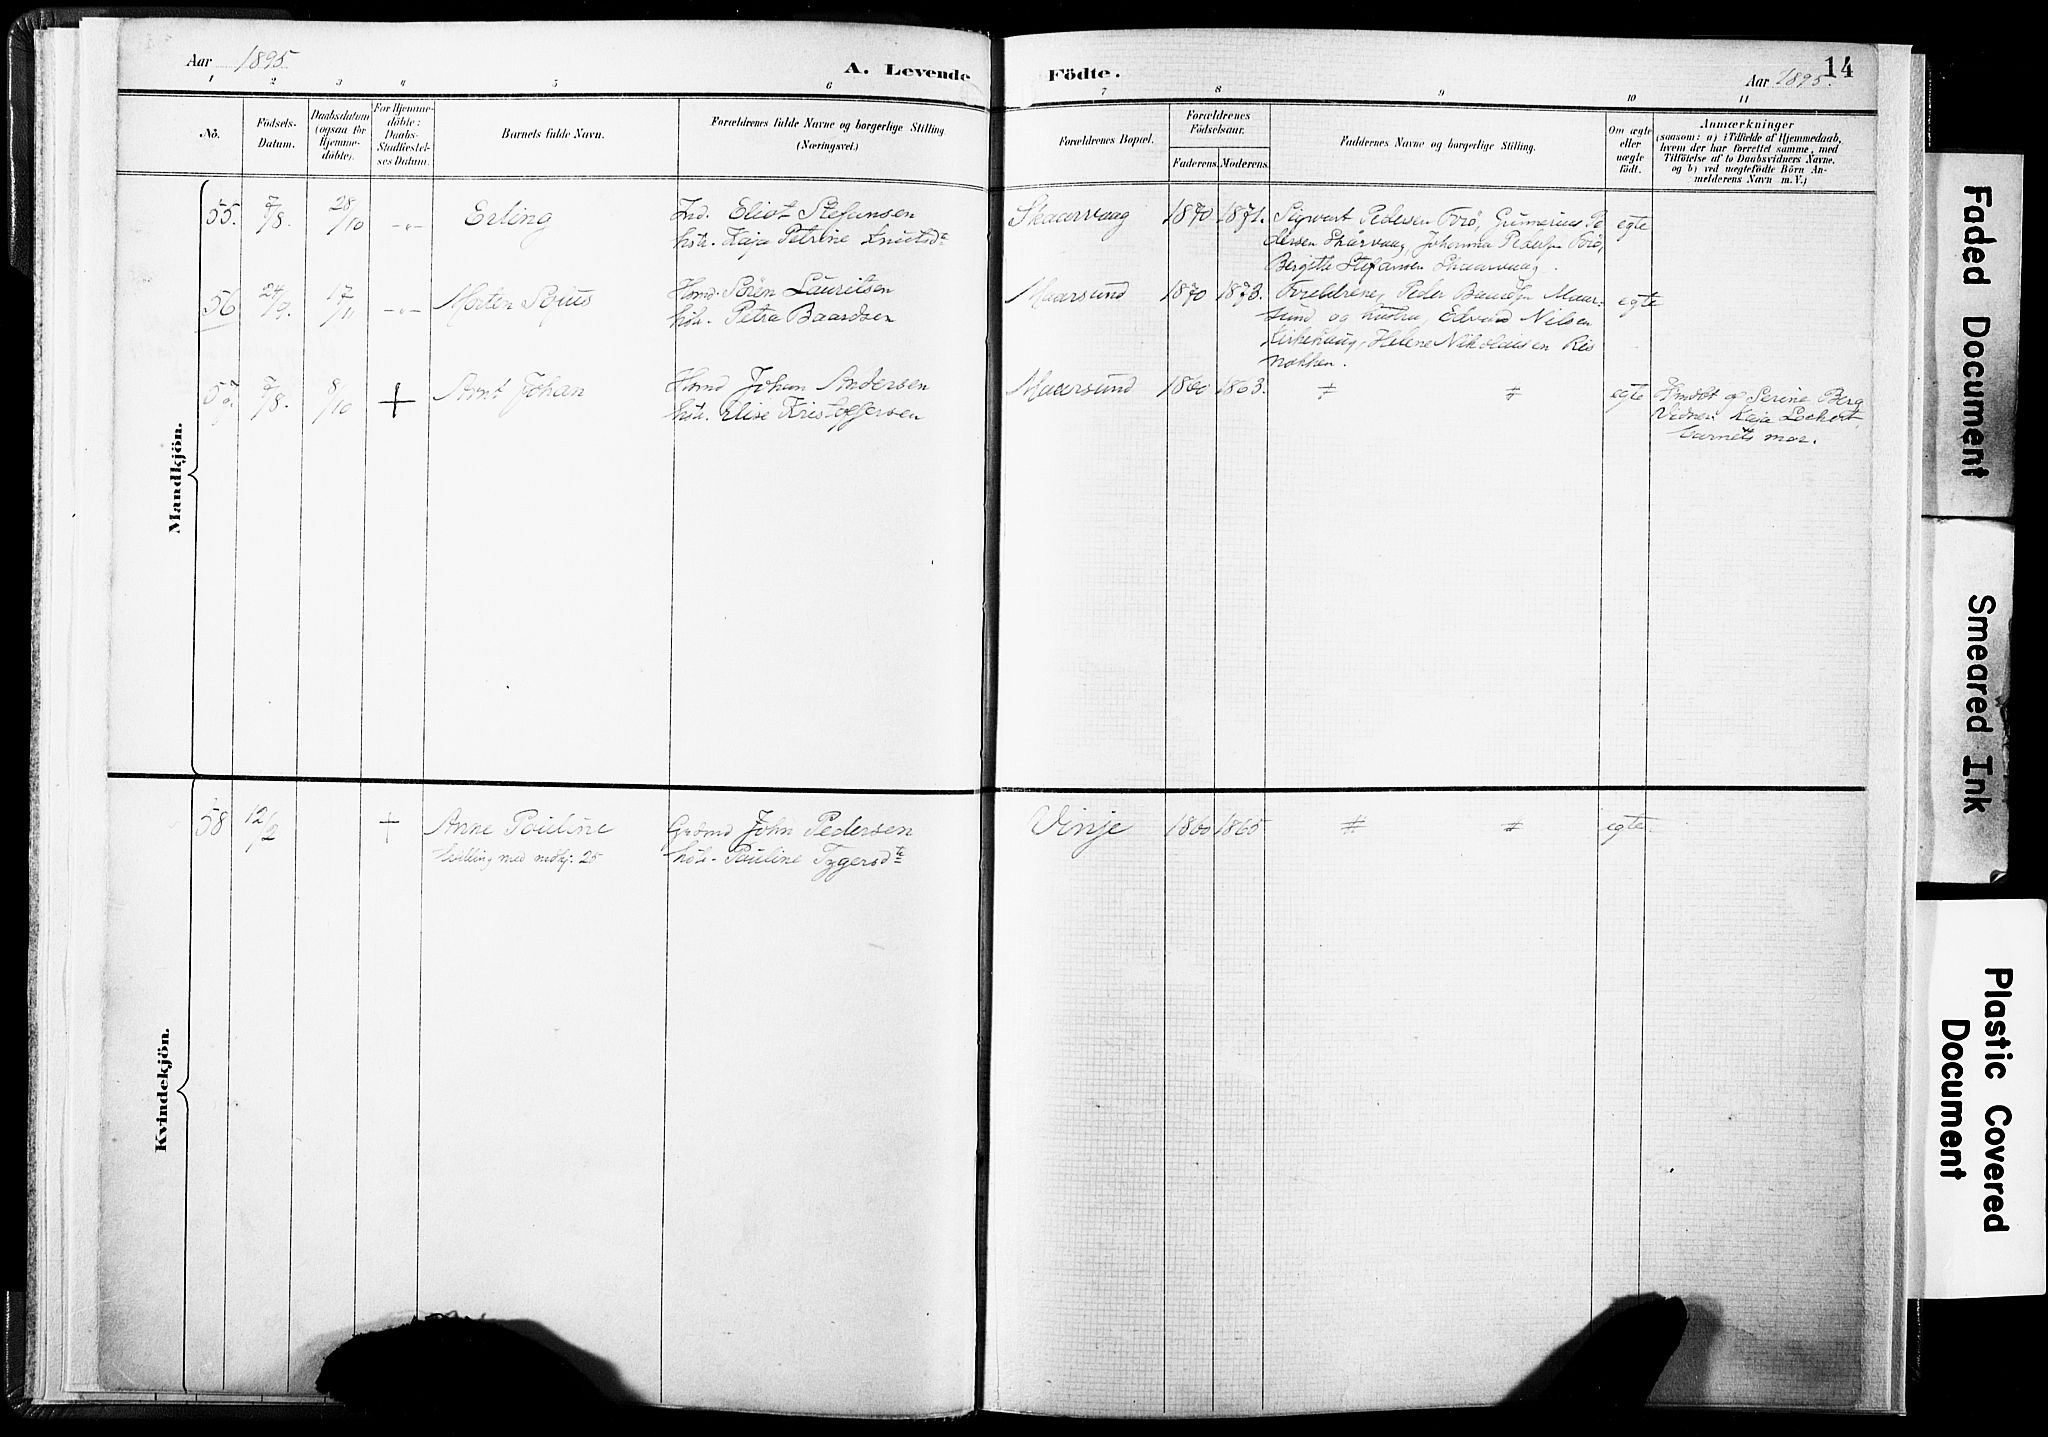 Aar 1895
A. Levende
Födte.
Aar 1895.
14
1 2 3 4 5 6
7 8 9 10 11
No.
Födsels-
Datum.
Daabsdatum
(ogsaa for
Hjemme-
döbte).
For Hjemme-
döbte:
Daabs-
Stadfæstel-
ses Datum.
Barnets fulde Navn.
Forældrenes fulde Navne og borgerlige Stilling.
(Næringsvei.)
Forældrenes Bopæl.
Forældrenes
Födselsaar.
Faderens. Moderens.
Faddernes Navne og borgerlige Stilling.
Om ægte
eller
uægte
født.
Anmærkninger
(saasom: a) i Tilfælde af Hjemmedaab,
hvem der har forrettet samme, med
Tilföielse af to Daabsvidners Navne.
og b) ved uægtefödte Börn An-
melderens Navn m. V.)
Mandkjön.
55. 7/8. 28/10 -"- Erling
Ind. Eliot Stefansen
hstr. Kaja Petrine Knutsdtr
Skaarvaag 1870 1871. Sigvart Pedersen Forö, Gunnerius Pe-
dersen Skårvaag, Johanna
Bergitte Stefansen Skaarvaag.
egte
56 24/9. 17/11 -"- Morten
Hmd. Sören Lauritsen
hstr. Petra Baardsen
Maarsund 1870 1873. Forældrene, Peder Maar-
sund og hustru, Edvard Nilsen
Kirkehaug, Helene Nikolaisen Ris
nakken.
egte
57. 7/8. 8/10 + Arnt Johan
Hmd Johan Andersen
hstr. Elise Kristoffersen
Maarsund 1860 1863. egte
Hmdöt af Serine Berg
Vidner: Kaja
barnets mor.
Kvindekjön.
58 12/2 + Anne Pauline
tvilling med mdkj. 25
Grdmd John Pedersen
hstr. Pauline
Vinje 1860 1865 egte
Faded Document
Smeared Ink
Plastic Covered
Document